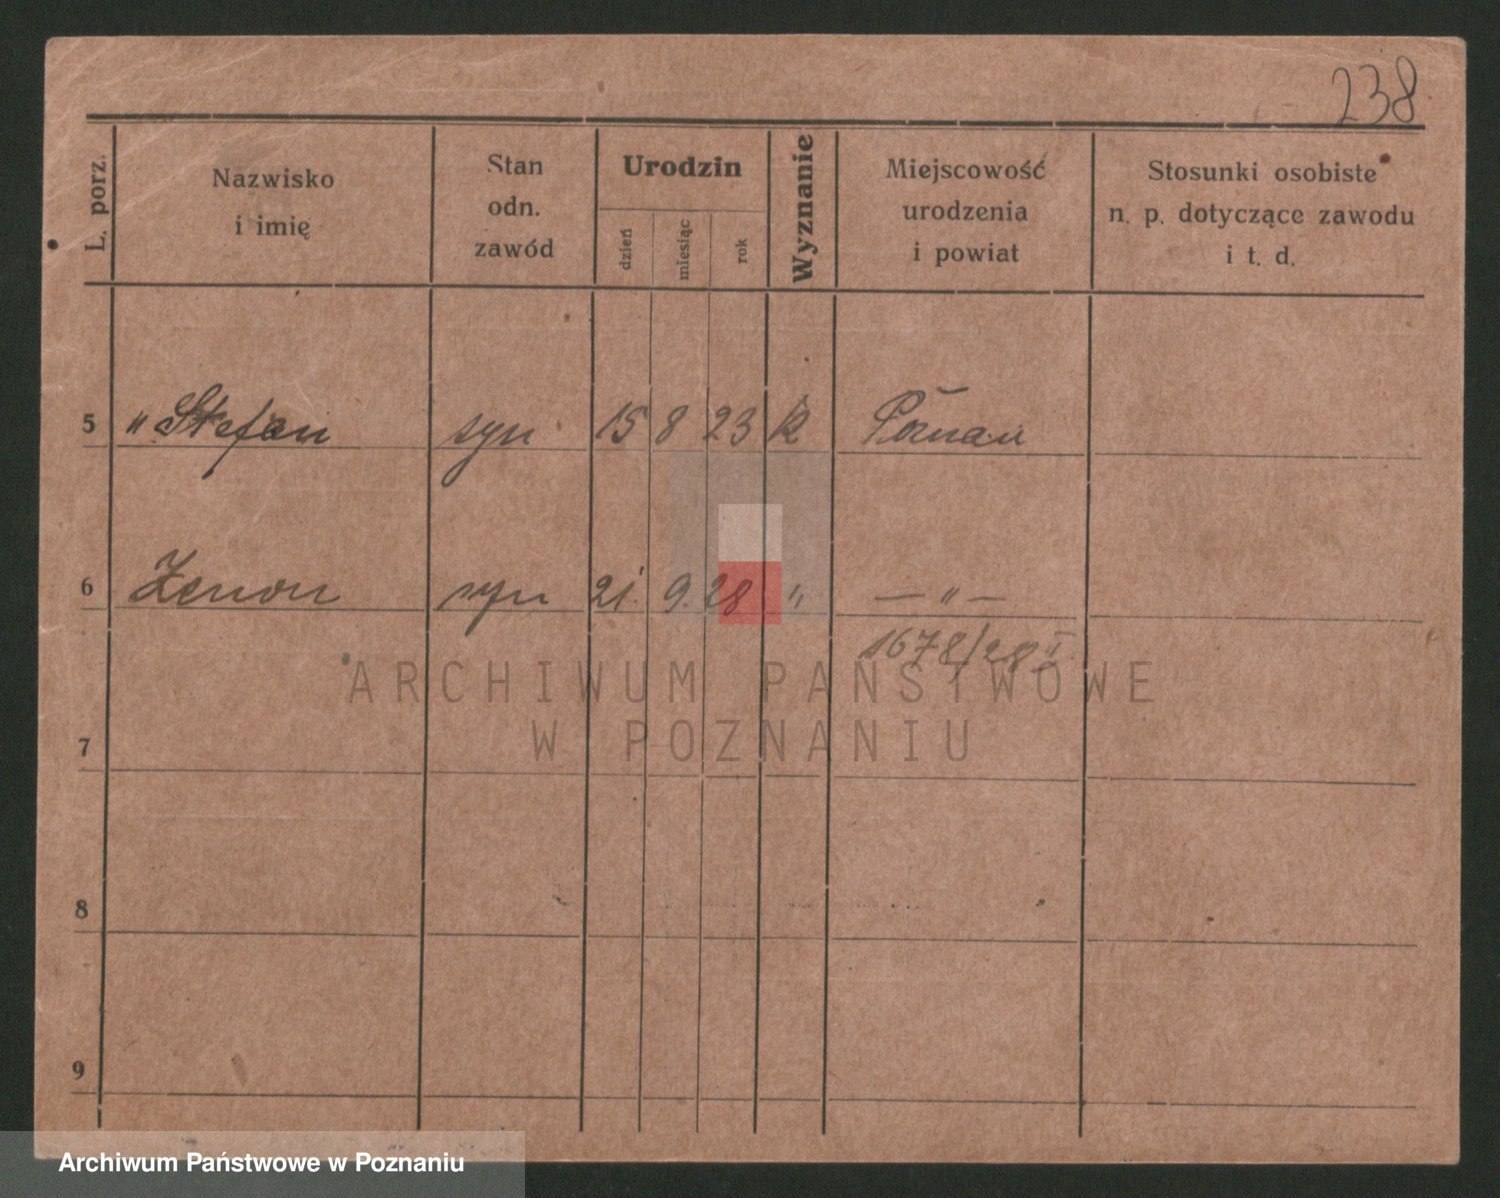 238
L. porz.
Nazwisko
i imię
Stan
odn.
zawód
Urodzin
dzień
miesiąc
rok
Wyznanie
Miejscowość
urodzenia
i powiat
Stosunki osobiste
n. p. dotyczące zawodu
i t. d.
5 „ Stefan syn 15 8 23 k Poznań
6 Zenon syn 21. 9. 28 „ — „ —
1678/28 I
ARCHIWUM PAŃSTWOWE
W POZNANIU
7
8
9
Archiwum Państwowe w Poznaniu